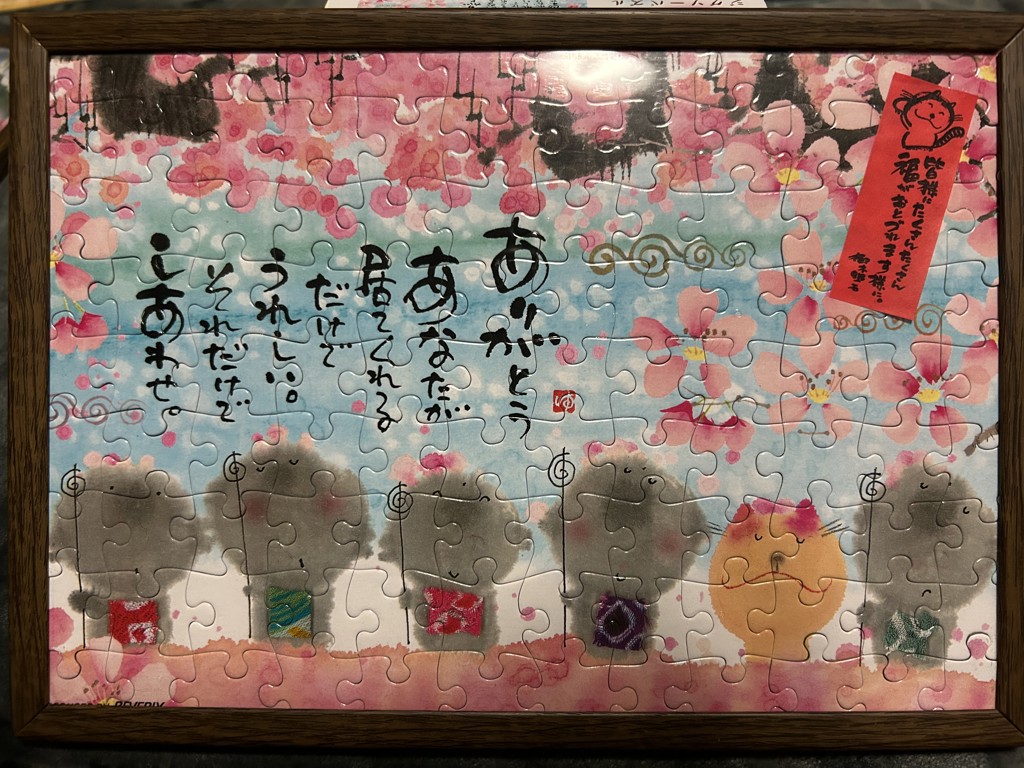 ありがとう
あなたが
居てくれる
だけで
うれしい。
それだけで
しあわせ。
皆様に たくさんたくさん
福がおとづれます様に。
ゆ
BEVERLY
ジグソーパズル